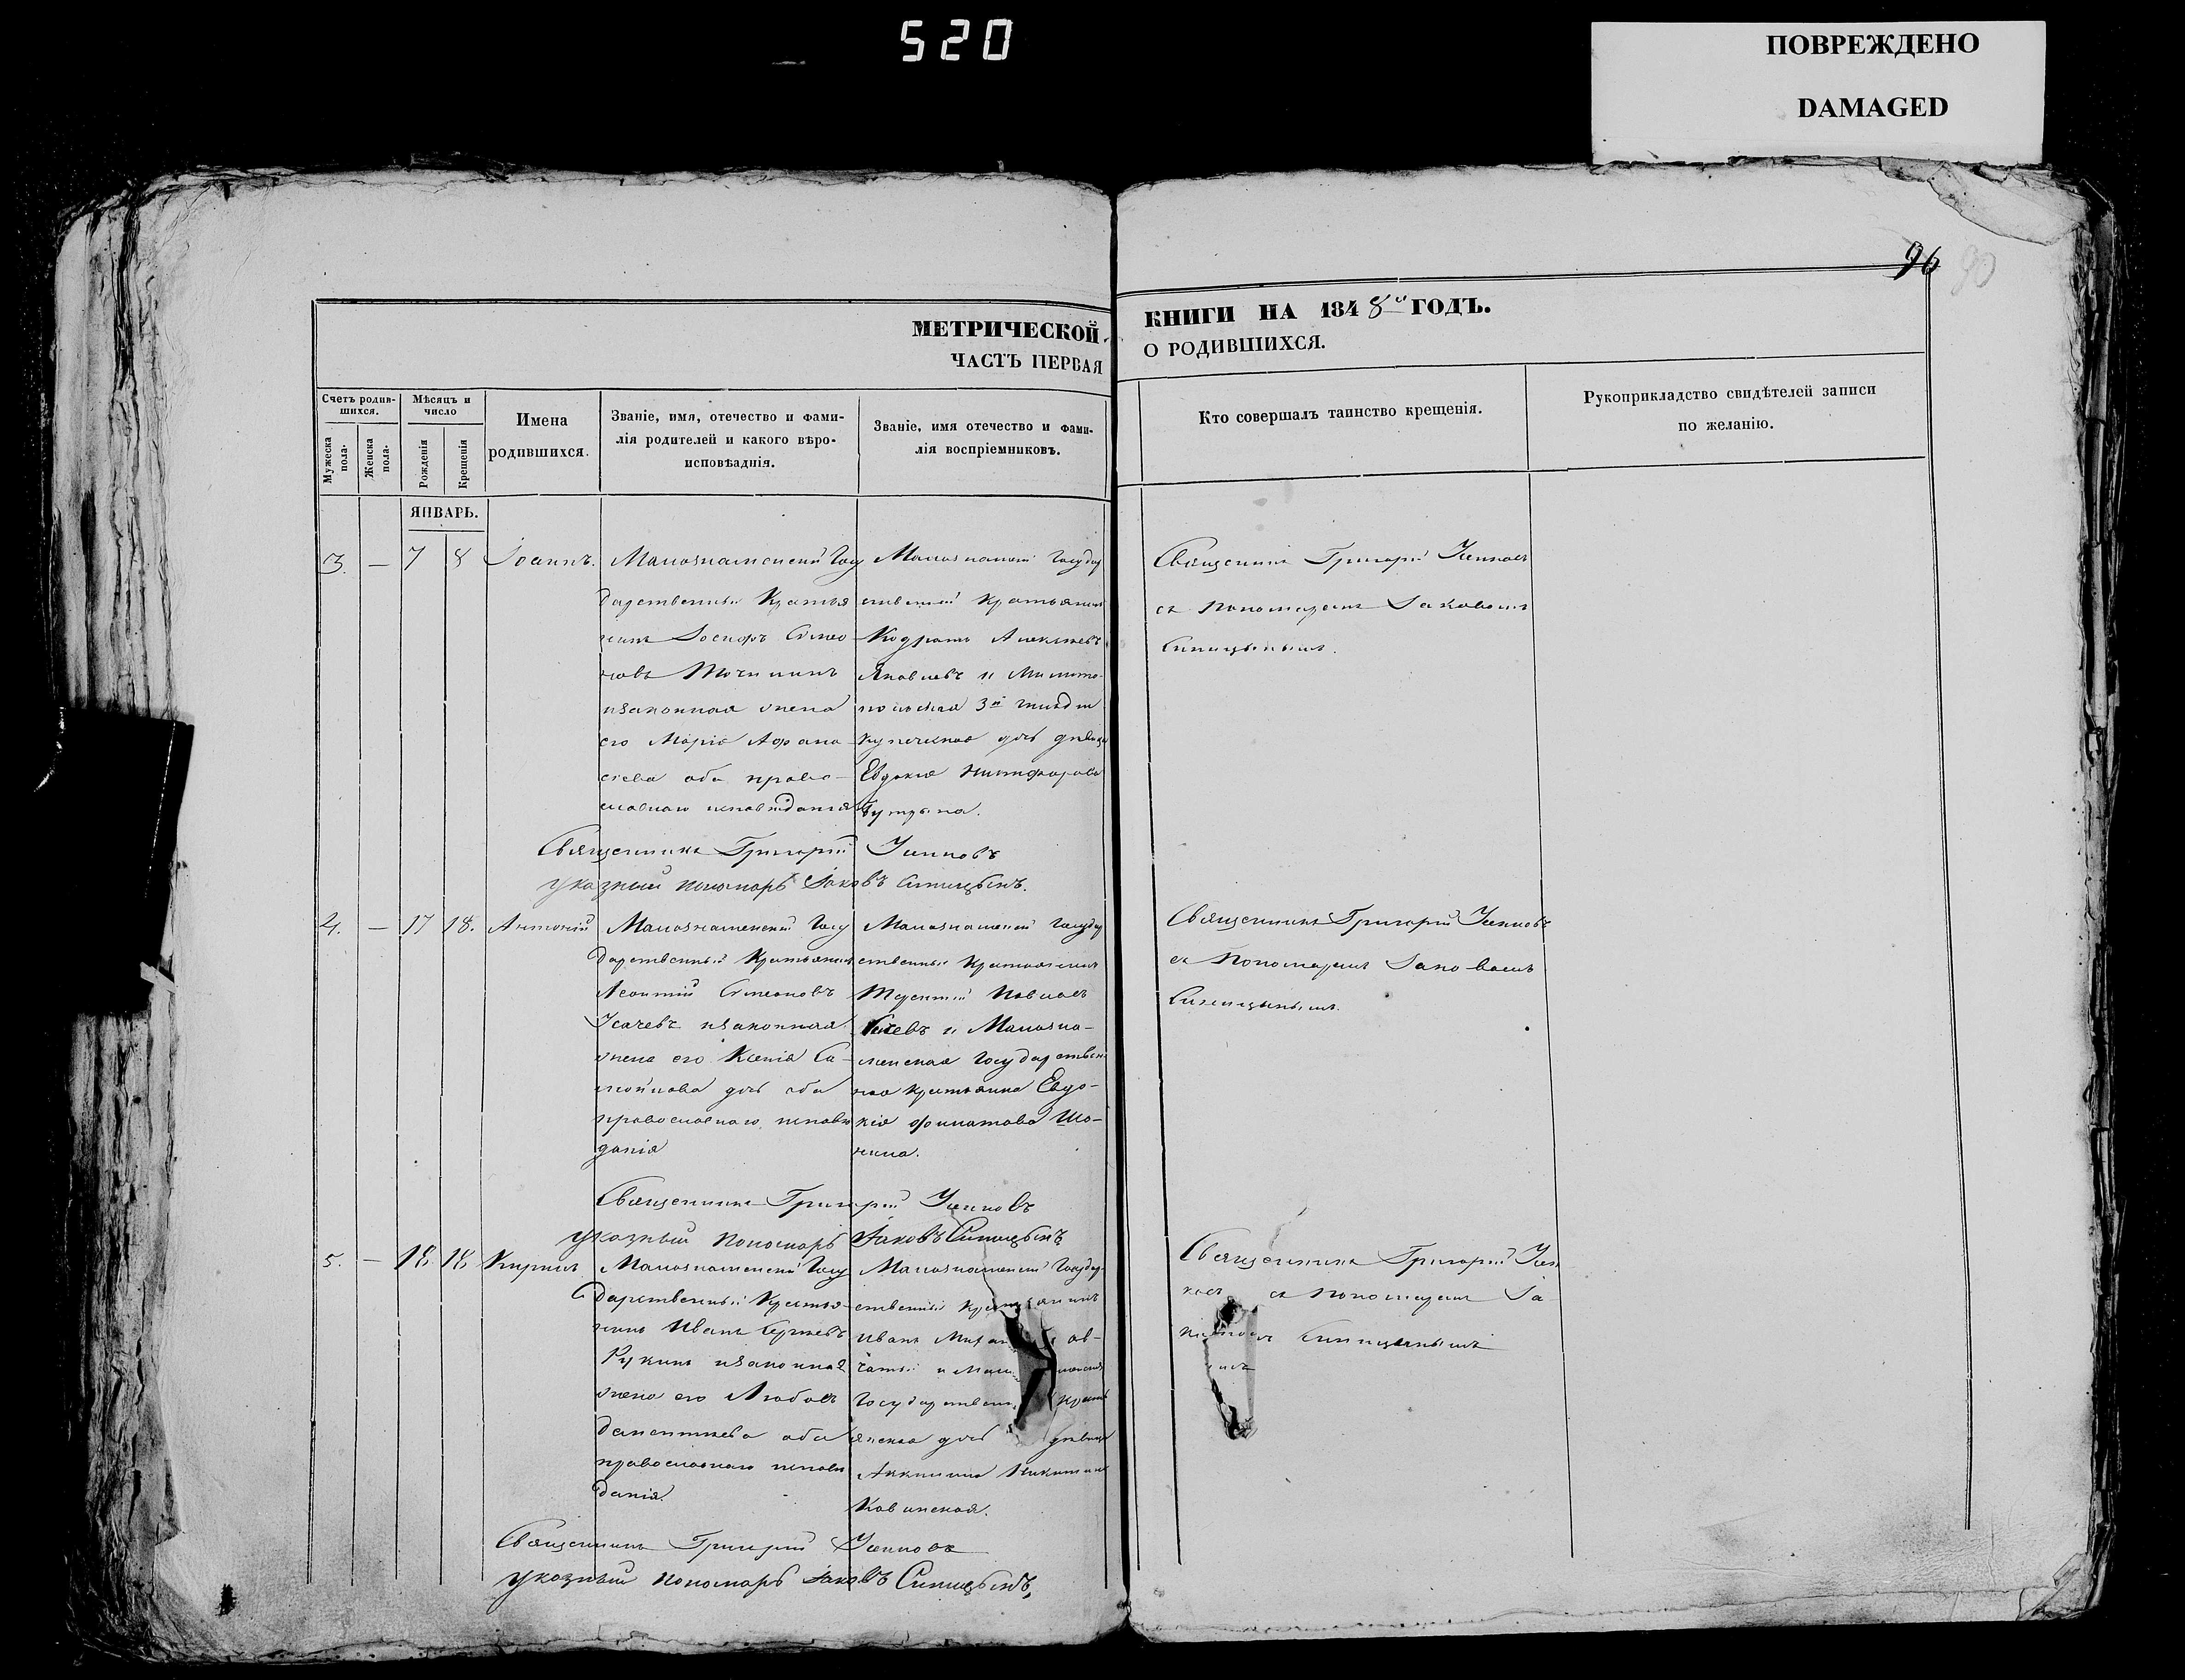 520
ПОВРЕЖДЕНО
DAMAGED
96
90
МЕТРИЧЕСКОЙ
ЧАСТЬ ПЕРВАЯ
КНИГИ НА 1848й ГОДЪ.
О РОДИВШИХСЯ.
Счетъ родив-
шихся.
Мужеска
пола.
Женска
пола.
Мѣсяцъ и
число
Рожденія
Крещенія
Имена
родившихся.
Званіе, имя, отечество и фами-
лія родителей и какого вѣро-
исповѣаднія.
Званіе, имя отечество и фами-
лія воспріемниковъ.
Кто совершалъ таинство крещенія.
Рукоприкладство свидѣтелей записи
по желанію.
ЯНВАРЬ.
3. — 7 8 Іоаннъ.
Малознаменскій Госу
дарственный Крестья
нинъ Іосифъ Симео
новъ
изаконная жена
его Марія Афана
сіева оба право-
славнаго исповѣданія
Малознаменскій Государ
ственный крестьянинъ
Кодратъ Алексѣевъ
Яковлевъ и Мелито-
польская 3й гильдіи
купеческая дочь дѣвица
Евдокія Никифорова
Священникъ Григорій
съ Пономаремъ Іаковомъ
Синицынымъ.
Священникъ Григорій
указный пономарь Іаковъ Синицынъ.
4. — 17 18. Антоній
Малознаменскій Госу
дарственный Крестьянинъ
Леонтій Симеоновъ
Усачевъ изаконная
жена его Ксенія Са-
мойлова дочь оба
православнаго исповѣ
данія
Малознаменскій Государ
ственный Крестьянинъ
Терентій Павловъ
и Малозна-
менская Государствен
ная крестьянка Евдо-
кія Филатова Шо-
нина.
Священникъ Григорій
съ Пономаремъ Іаковомъ
Синицынымъ.
Священникъ Григорій
указный пономарь Іаковъ Синицынъ
5. — 18 18 Кирилъ
Малознаменскій Госу
дарственный Крестья-
нинъ Иванъ Сергѣевъ
Рукинъ изаконная
жена его Любовь
Дементіева оба
православнаго исповѣ
данія.
Малознаменскій Государ
ственный крестьянинъ
Иванъ
и
Государствен крест
янска дочь дѣвица
Акилина Никитина
Кавинская.
Священникъ Григорій
съ Пономаремъ Іа-
Синицынымъ
Священникъ Григорій
указный пономарь Іаковъ Синицынъ,